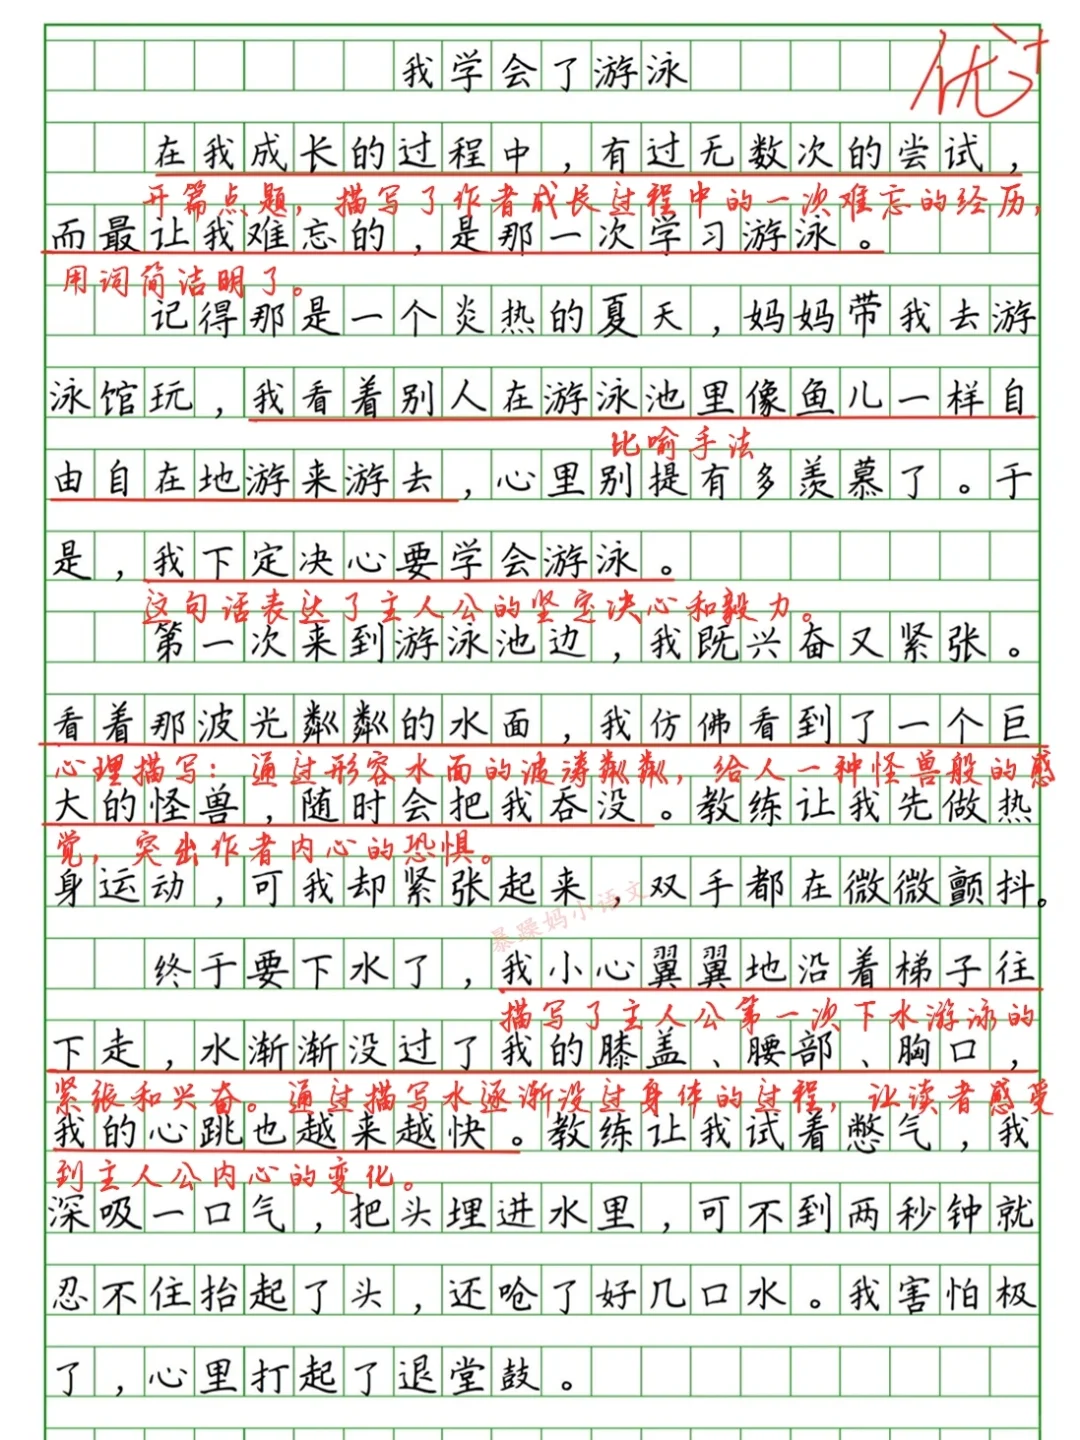 我学会了游泳
优+
在我成长的过程中，有过无数次的尝试，
开篇点题，描写了作者成长过程中的一次难忘的经历，
而最让我难忘的，是那一次学习游泳。
用词简洁明了。
记得那是一个炎热的夏天，妈妈带我去游
泳馆玩，我看着别人在游泳池里像鱼儿一样自
比喻手法
由自在地游来游去，心里别提有多羡慕了。于
是，我下定决心要学会游泳。
这句话表达了主人公的坚定决心和毅力。
第一次来到游泳池边，我既兴奋又紧张。
看着那波光粼粼的水面，我仿佛看到了一个巨
心理描写：通过形容水面的波涛粼粼，给人一种怪兽般的感
大的怪兽，随时会把我吞没。教练让我先做热
觉，突出作者内心的恐惧。
身运动，可我却紧张起来，双手都在微微颤抖。
暴躁妈小语文
终于要下水了，我小心翼翼地沿着梯子往
描写了主人公第一次下水游泳的
下走，水渐渐没过了我的膝盖、腰部、胸口，
紧张和兴奋。通过描写水逐渐没过身体的过程，让读者感受
我的心跳也越来越快。教练让我试着憋气，我
到主人公内心的变化。
深吸一口气，把头埋进水里，可不到两秒钟就
忍不住抬起了头，还呛了好几口水。我害怕极
了，心里打起了退堂鼓。